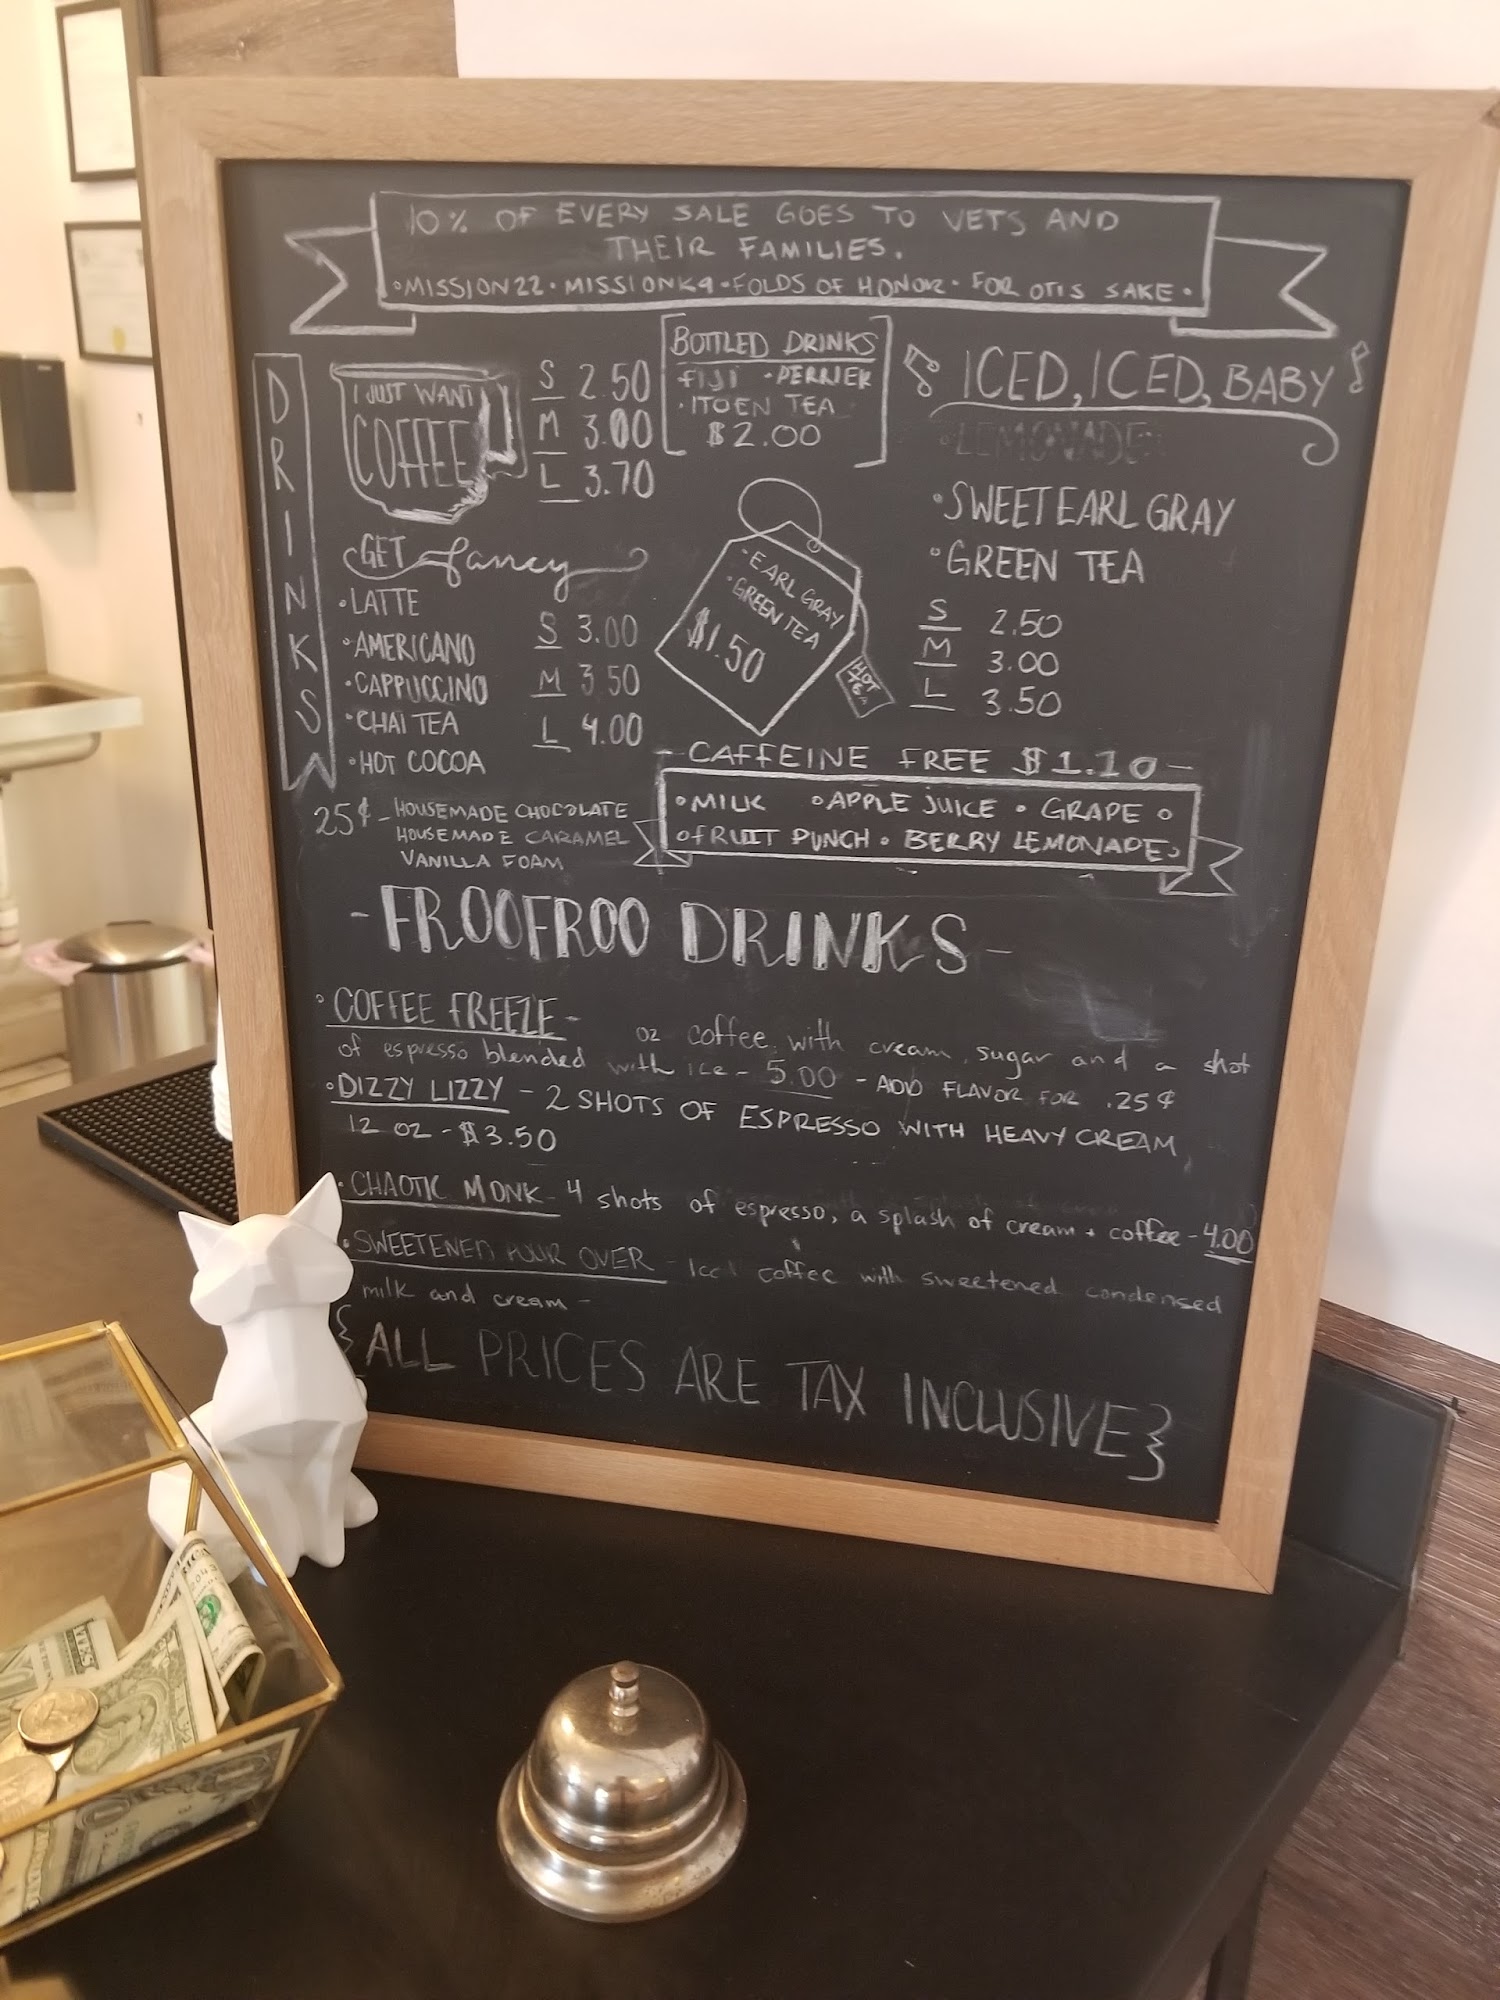 10% OF EVERY SALE GOES TO VETS AND
THEIR FAMILIES.
•MISSION22•MISSIONK9•FOLDS OF HONOR•FOR OTIS SAKE•
DRINKS
I JUST WANT
COFFEE
S 2.50
M 3.00
L 3.70
BOTTLED DRINKS
FIJI •PERRIER
•ITOEN TEA
$2.00
ICED, ICED, BABY
•LEMONADE
•SWEET EARL GRAY
•GREEN TEA
S 2.50
M 3.00
L 3.50
GET fancy
•LATTE
•AMERICANO
•CAPPUCCINO
•CHAI TEA
•HOT COCOA
S 3.00
M 3.50
L 4.00
•EARL GRAY
•GREEN TEA
$1.50
HOT
TEA
25¢ - HOUSEMADE CHOCOLATE
HOUSEMADE CARAMEL
VANILLA FOAM
- CAFFEINE FREE $1.10 -
•MILK •APPLE JUICE • GRAPE •
•FRUIT PUNCH • BERRY LEMONADE•
- FROOFROO DRINKS -
•COFFEE FREEZE - oz coffee with cream, sugar and a shot
of espresso blended with ice - 5.00 - ADD FLAVOR FOR .25¢
•DIZZY LIZZY - 2 SHOTS OF ESPRESSO WITH HEAVY CREAM
12 OZ - $3.50
•CHAOTIC MONK - 4 shots of espresso, a splash of cream + coffee - 4.00
•SWEETENED POUR OVER - Iced coffee with sweetened condensed
milk and cream -
{ALL PRICES ARE TAX INCLUSIVE}